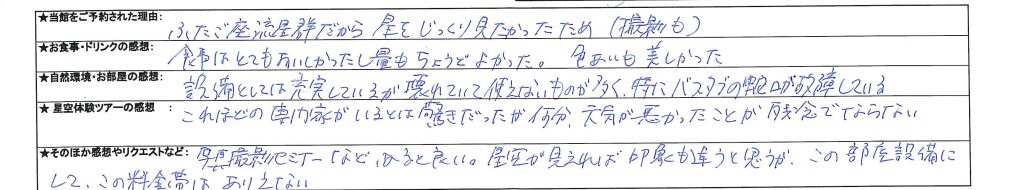 ★当館をご予約された理由:
ふたご座流星群だから 星をじっくり見たかったため(撮影も)
★お食事・ドリンクの感想:
食事はとてもおいしかったし量もちょうどよかった。 色あいも美しかった
★自然環境・お部屋の感想:
設備としては充実しているが壊れていて使えないものが多く、特にバスタブの蛇口が故障している
★ 星空体験ツアーの感想 :
これほどの専門家がいるとは驚きだったが何分、天気が悪かったことが残念でならない
★そのほか感想やリクエストなど:
写真撮影セミナーなど、あると良い。星空が見えれば印象も違うと思うが、この部屋設備に
して、この料金帯は ありえない